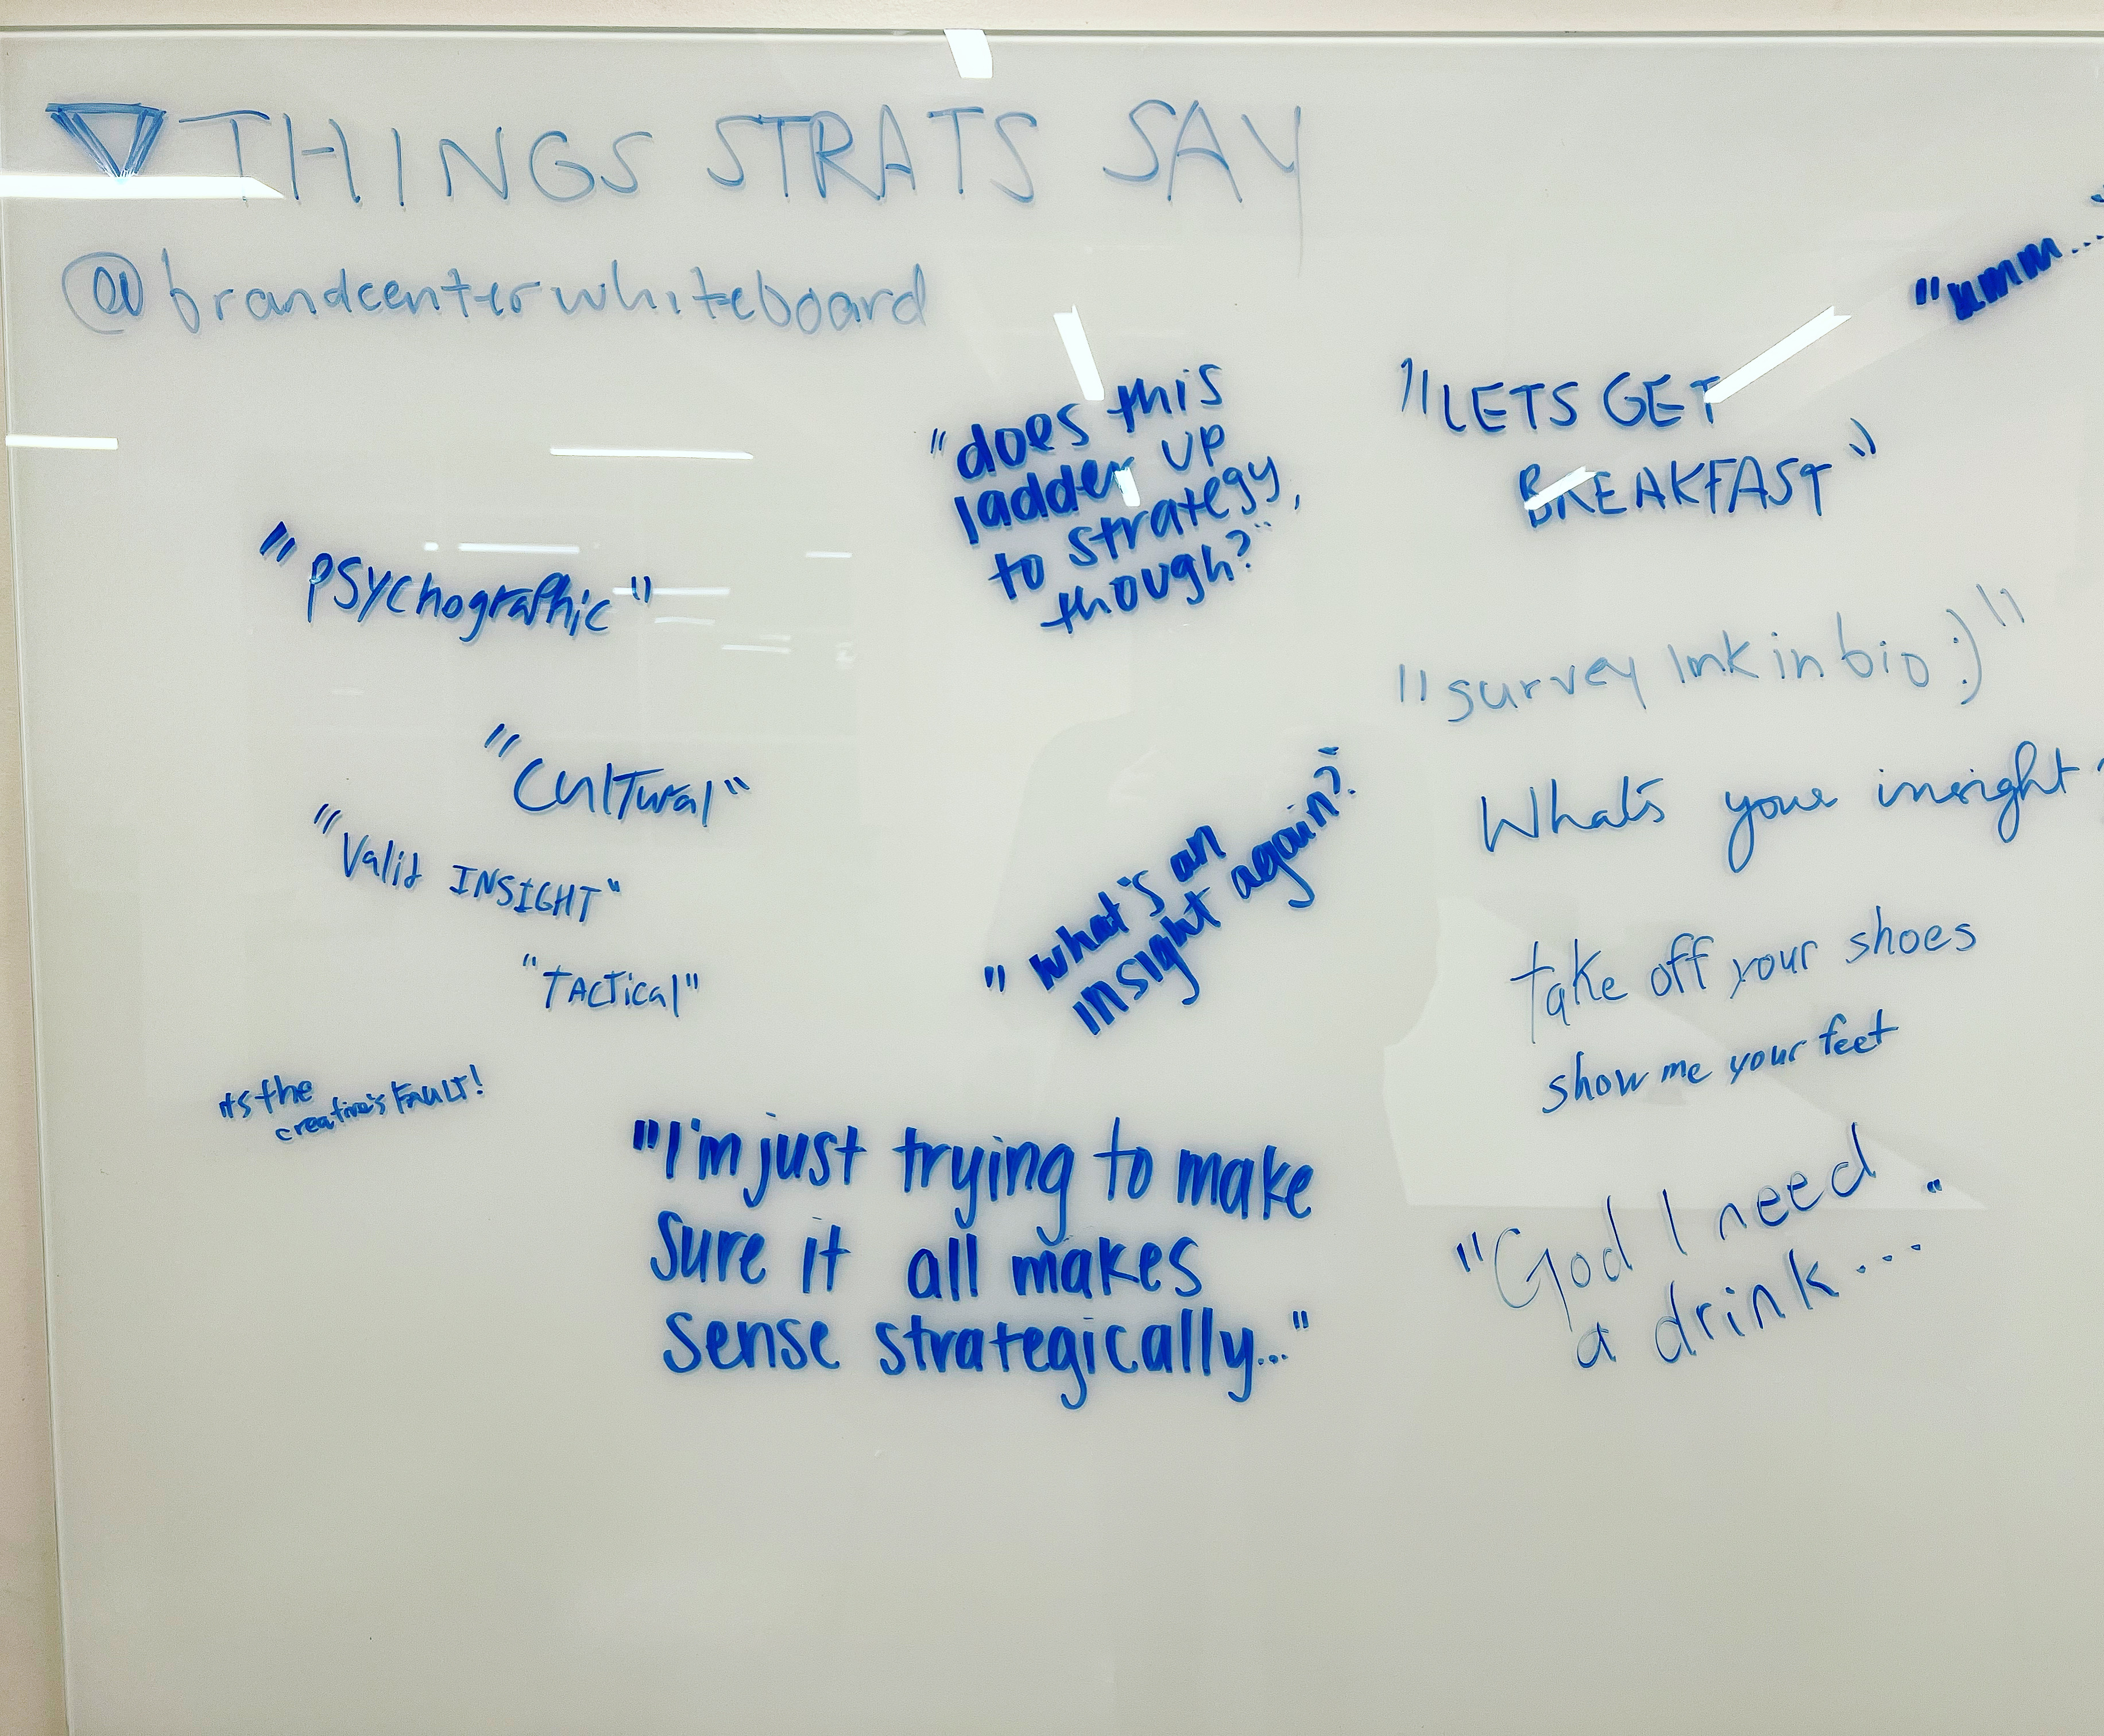 THINGS STRATS SAY
@brandcenterwhiteboard
"umm...
"does this
ladder up
to strategy,
though?"
"LETS GET
BREAKFAST"
"PSYchographic"
"survey link in bio :)"
"CulTural"
"Valid INSIGHT"
"TACTical"
"what's an
insight again?"
What's your insight
take off your shoes
show me your feet
its the
creative's FAULT!
"I'm just trying to make
sure it all makes
sense strategically..."
"God I need
a drink...."